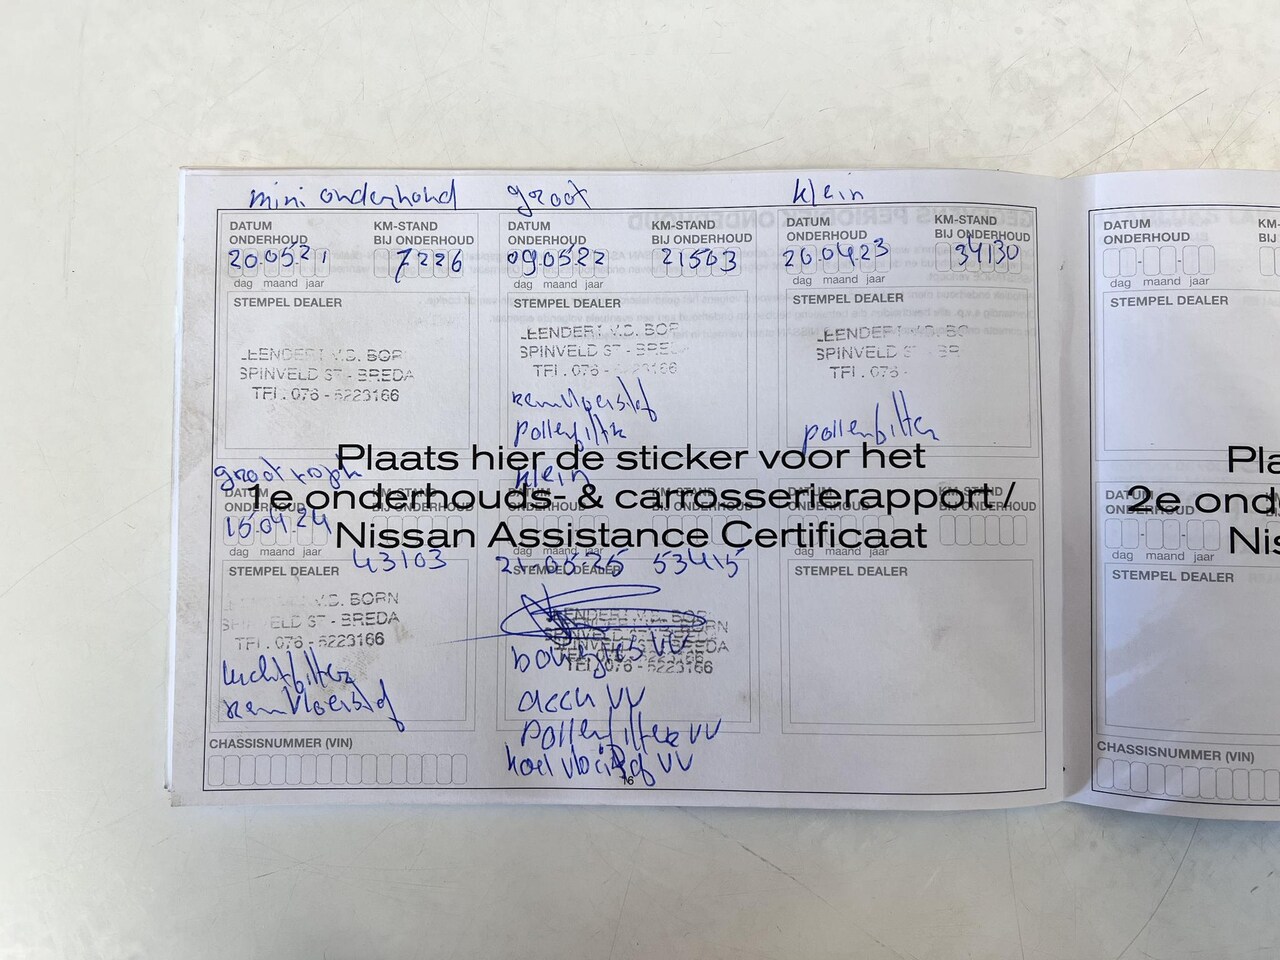 mini onderhoud
groot
klein
DATUM ONDERHOUD
KM-STAND BIJ ONDERHOUD
20.05.21
7226
dag maand jaar
STEMPEL DEALER
LEENDERT V.D. BORN
SPINVELD 37 - BREDA
TEL. 076 - 5223166
DATUM ONDERHOUD
KM-STAND BIJ ONDERHOUD
09.05.22
21503
dag maand jaar
STEMPEL DEALER
LEENDERT V.D. BOR
SPINVELD 37 - BRED
TEL. 076 - 5223166
remvloeistof
pollenfilter
DATUM ONDERHOUD
KM-STAND BIJ ONDERHOUD
20.04.23
34130
dag maand jaar
STEMPEL DEALER
LEENDERT V.D. BO
SPINVELD 37 - BR
TEL. 076 -
pollenfilter
Plaats hier de sticker voor het
1e onderhouds- & carrosserierapport /
Nissan Assistance Certificaat
groot
DATUM ONDERHOUD
KM-STAND BIJ ONDERHOUD
15.04.24
dag maand jaar
43103
STEMPEL DEALER
V.D. BORN
SPINVELD 37 - BREDA
TEL. 076 - 5223166
luchtfilter
remvloeistof
klein
DATUM ONDERHOUD
KM-STAND BIJ ONDERHOUD
dag maand jaar
21.05.25 53415
STEMPEL DEALER
LEENDERT V.D. BORN
SPINVELD 37 - BREDA
TEL. 076 - 5223166
bougies VV
accu VV
pollenfilter VV
koelvloeistof VV
DATUM ONDERHOUD
KM-STAND BIJ ONDERHOUD
dag maand jaar
STEMPEL DEALER
CHASSISNUMMER (VIN)
16
DATUM ONDERHOUD
KM-S
BIJ O
dag maand jaar
STEMPEL DEALER
Pla
2e ond
Nis
DATUM ONDERHOUD
dag maand jaar
STEMPEL DEALER
CHASSISNUMMER (VIN)